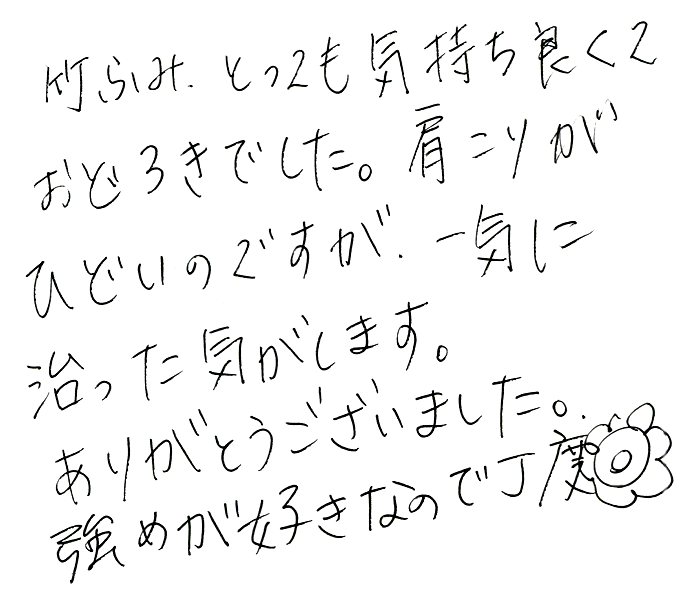 竹ふみ、とっても気持ち良くて
おどろきでした。肩こりが
ひどいのですが、一気に
治った気がします。
ありがとうございました。
強めが好きなので丁度